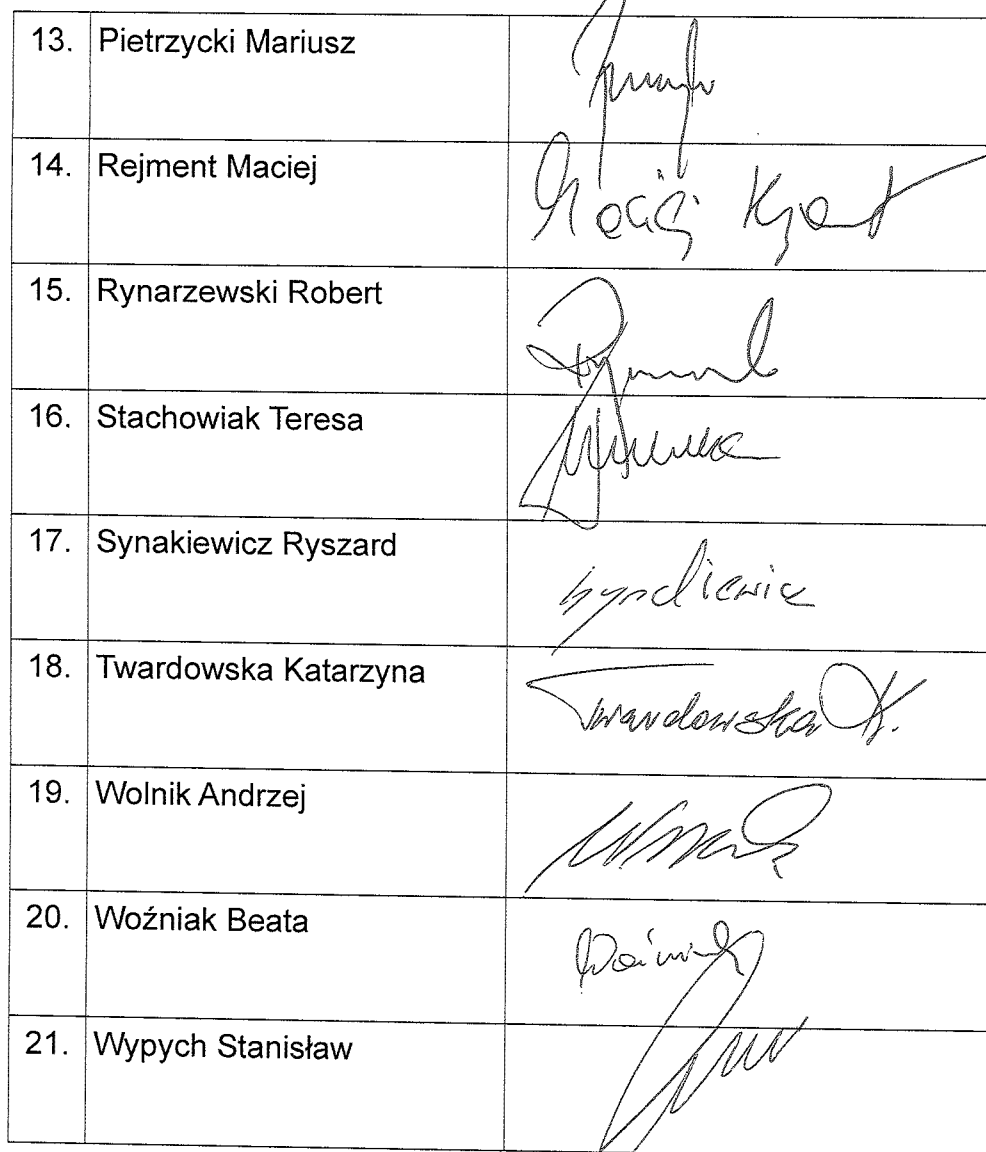 13. Pietrzycki Mariusz
14. Rejment Maciej
15. Rynarzewski Robert
16. Stachowiak Teresa
17. Synakiewicz Ryszard
18. Twardowska Katarzyna Twardowska K.
19. Wolnik Andrzej
20. Woźniak Beata Woźniak
21. Wypych Stanisław